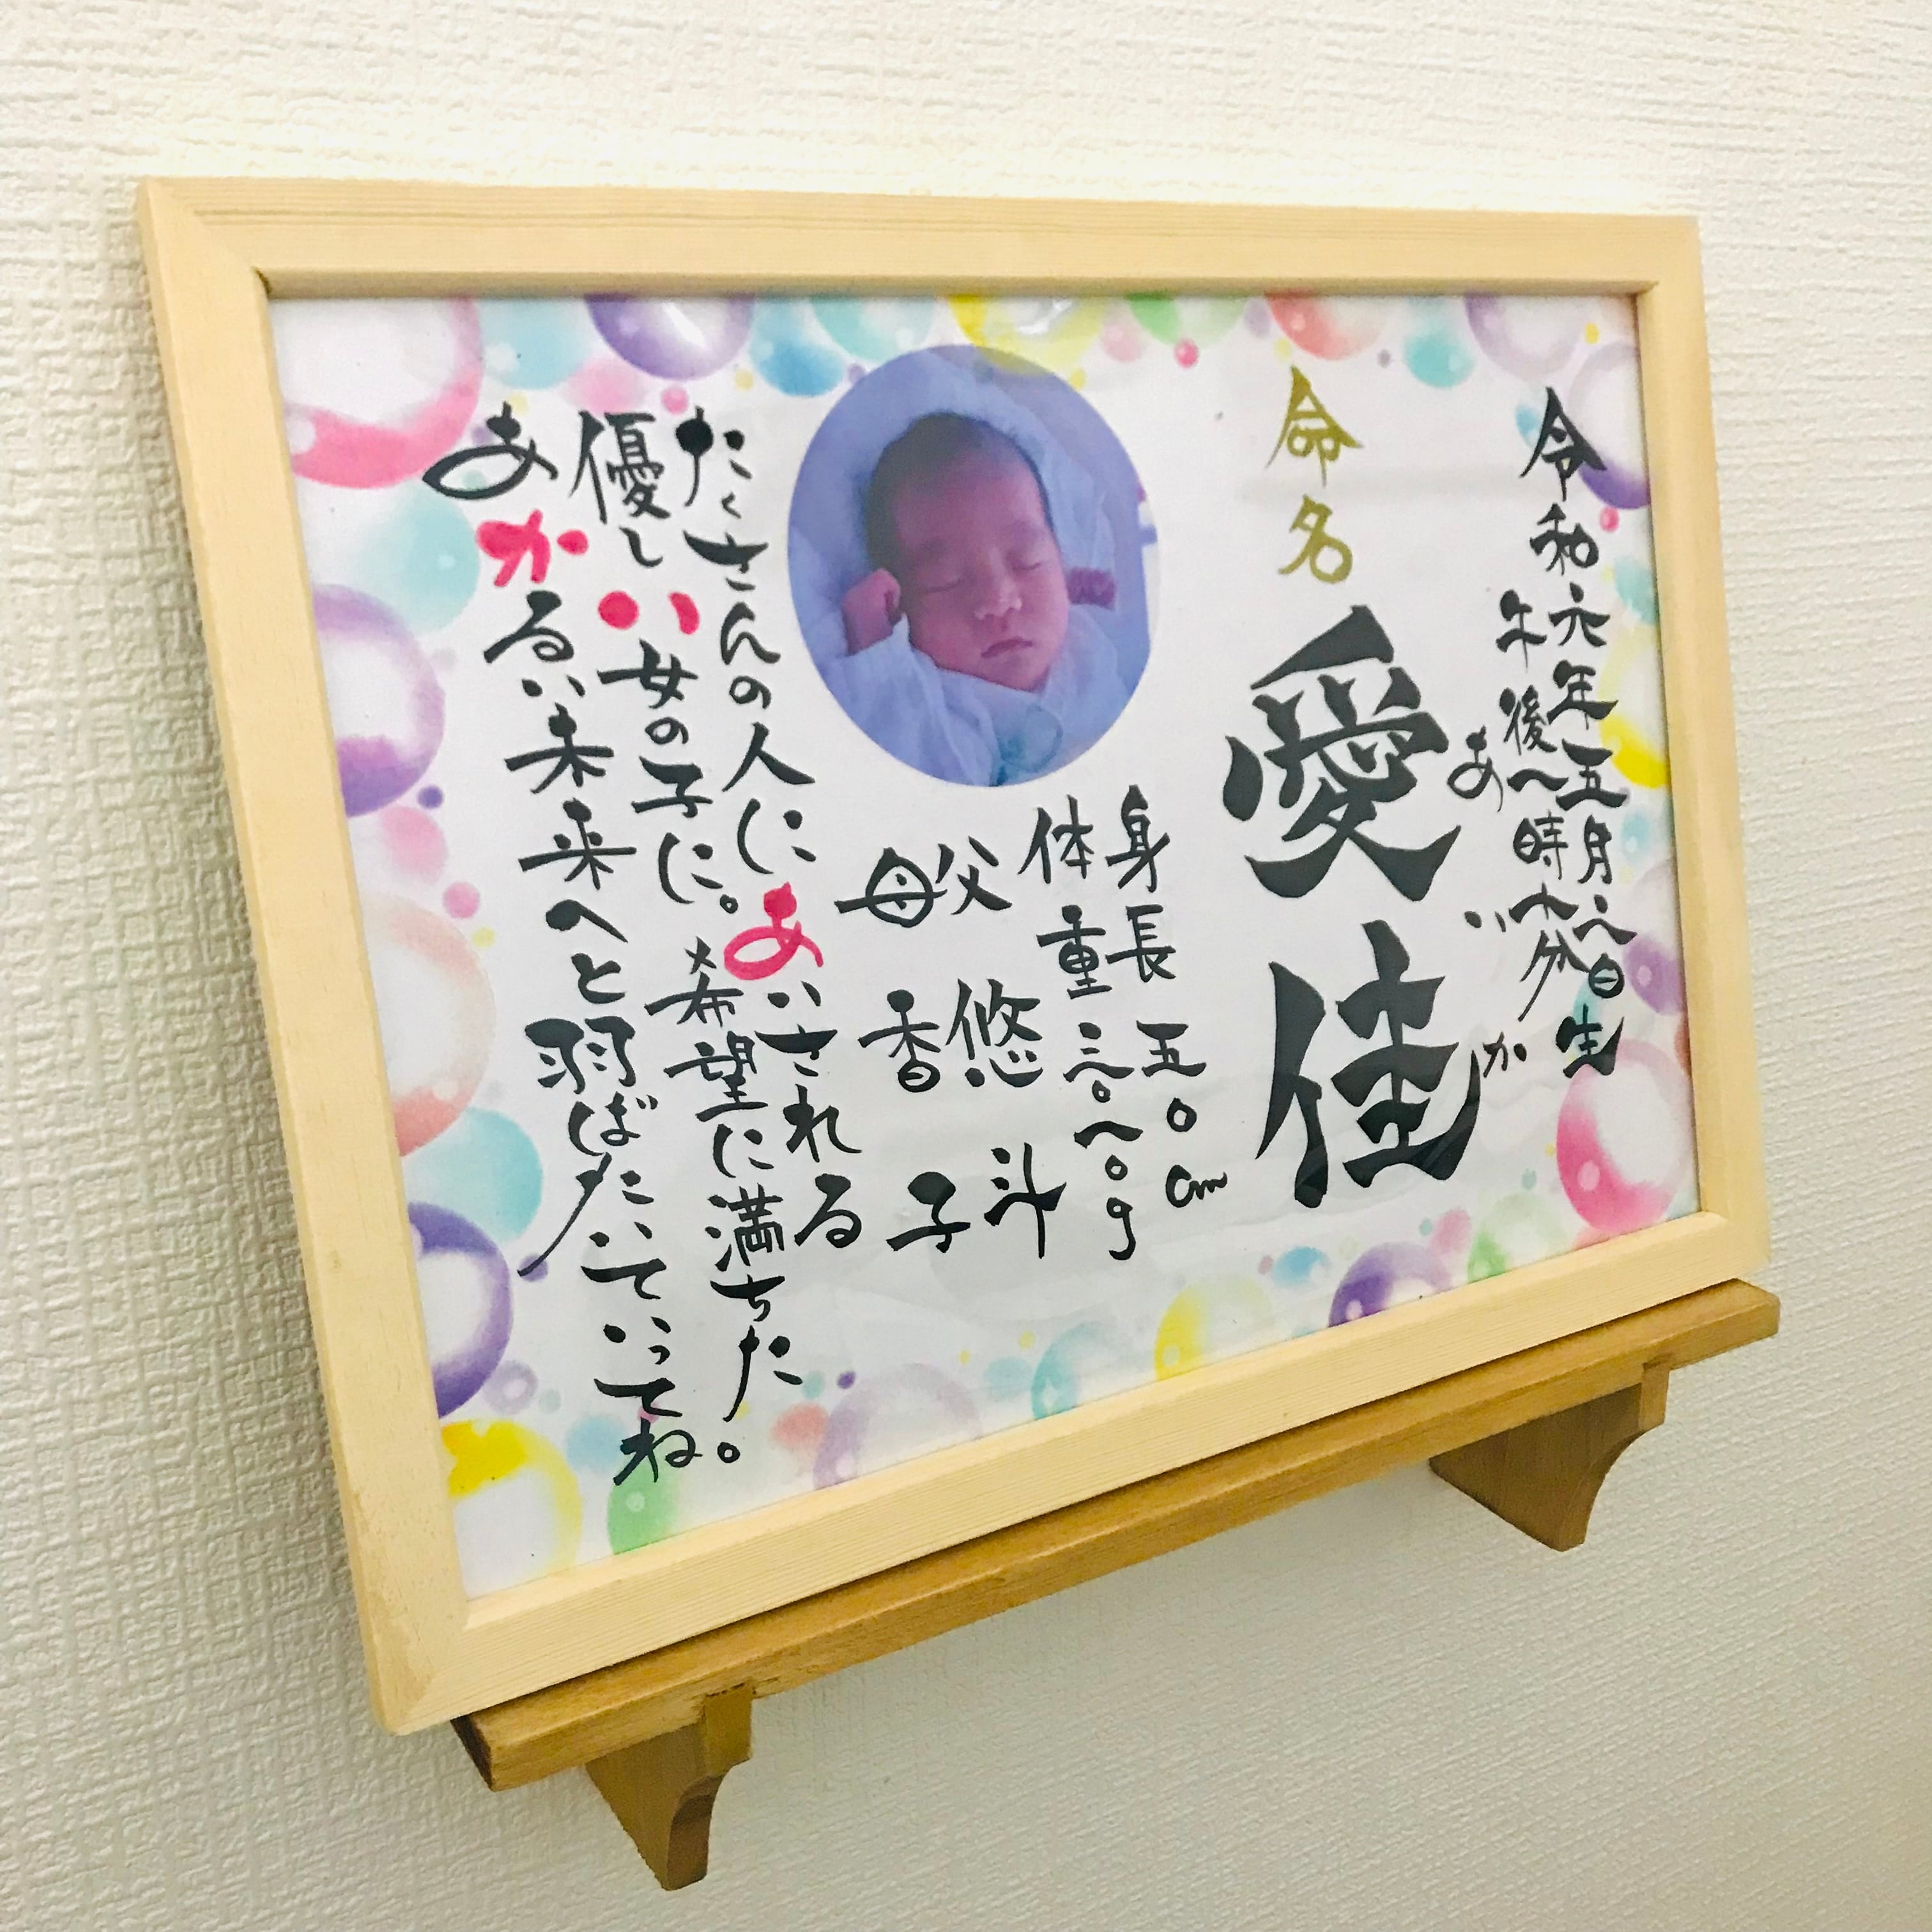 令和元年五月日生
午後時分
命名
愛佳
あいか
身長 五〇cm
体重
父 悠斗
母 香子
たくさんの人にあいされる
優しい女の子に。希望に満ちた
あかるい未来へと羽ばたいていってね。